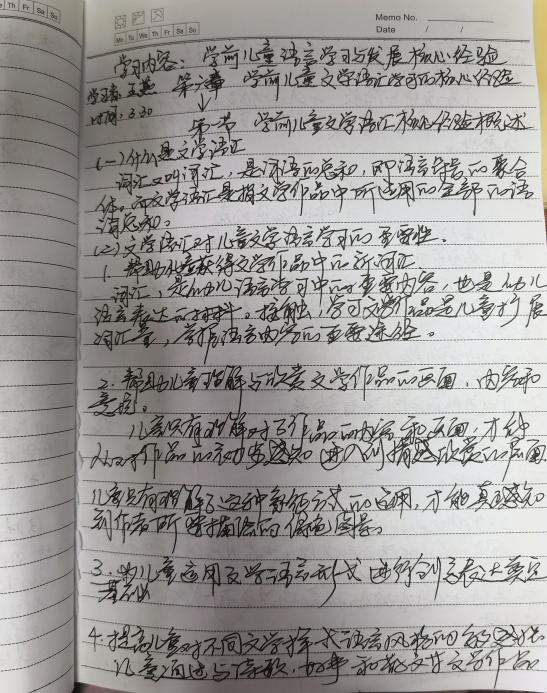 Th Fr Sa Su
Memo No.
Mo Tu We Th Fr Sa Su
Date / /
学习内容：学前儿童语言学习与发展核心经验
学习者：王燕 第六章 学前儿童文学语汇学习的核心经验
时间：3.30
第一节 学前儿童文学语汇核心经验概述
(一)什么是文学语汇
词汇又叫词汇，是词语的总和，即语言符号的聚合
体。而文学语汇是指文学作品中所运用的全部的语
词总和。
(二)文学语汇对儿童文学语言学习的重要性。
1. 帮助儿童获得文学作品中的新词汇
词汇，是幼儿语言学习中的重要内容，也是幼儿
语言表达的材料。接触，学习文学作品是儿童扩展
词汇量，掌握语言内容的重要途径。
2. 帮助儿童理解与欣赏文学作品的画面，内容和
意境。
儿童只有理解了作品的内容和画面，才能
从对作品的被动感知进入到情感欣赏的层面
儿童只有理解了这种象征方式的运用，才能真正感知
到作者所描绘的绿色图景。
3. 为儿童运用文学语言形式进行创意表达奠定
基础
4. 提高儿童对不同文学样式语言风格的敏感性
儿童通过与诗歌，故事和散文等文学作品